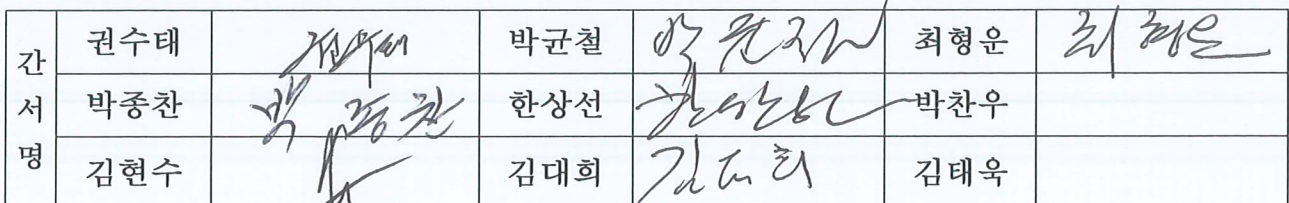 간서명
권수태 권수태 박균철 최형운 최형운
박종찬 박종찬 한상선 한상선 박찬우
김현수 김대희 김대희 김태욱